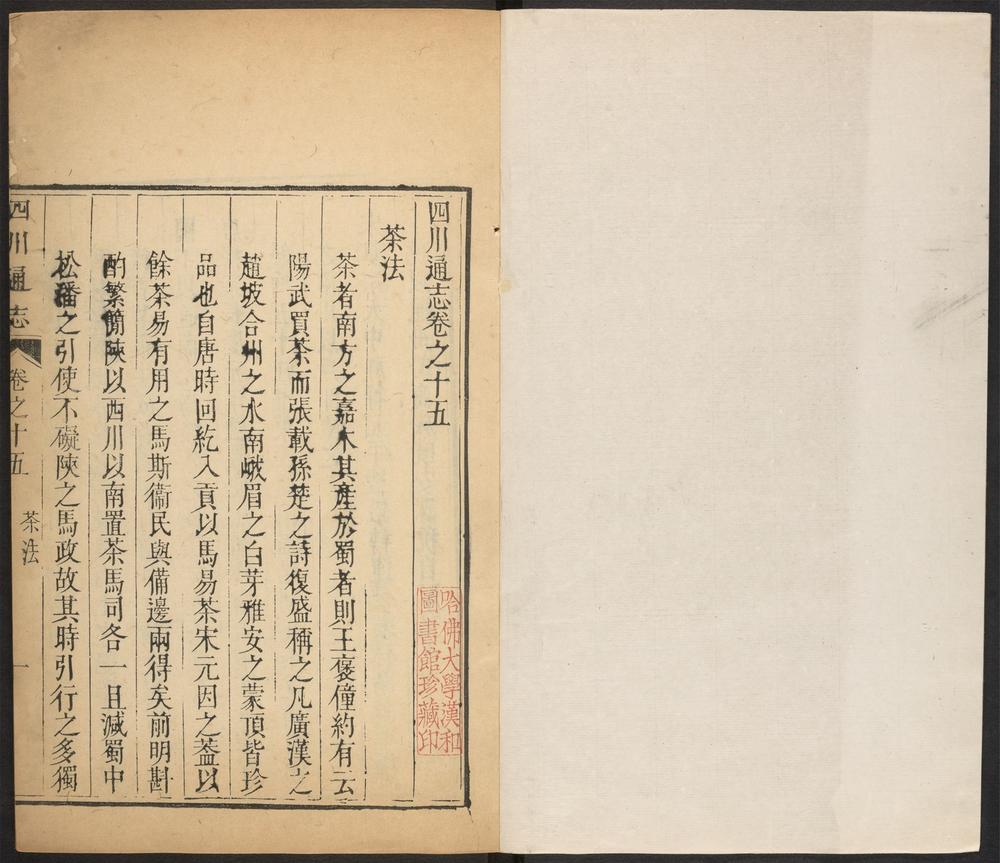 四川通志卷之十五
茶法
茶者南方之嘉木其產於蜀者則王褒僮約有云
陽武買茶而張載孫楚之詩復盛稱之凡廣漢之
趙坡合州之水南峨眉之白芽雅安之蒙頂皆珍
品也自唐時回紇入貢以馬易茶宋元因之葢以
餘茶易有用之馬斯衞民與備邊兩得矣前明斟
酌繁簡陝以西川以南置茶馬司各一且減蜀中
松潘之引使不礙陝之馬政故其時引行之多獨
四川通志
卷之十五
茶法
一
哈佛大學漢和
圖書館珍藏印